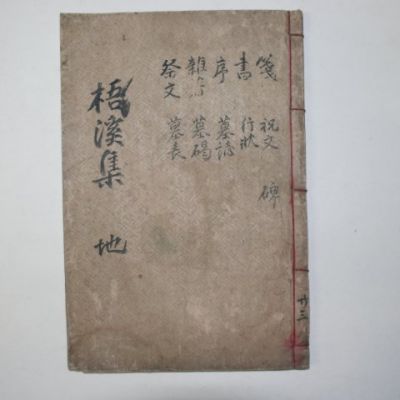 箋 祝文 碑
書 行狀
序 墓誌
雜著 墓碣
祭文 墓表
梧溪集 地
廿三